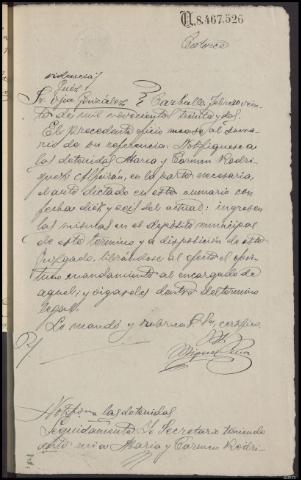 N.8.467.526
Catorce
Providencia
Juez
Sr. Lopez González } Carballo, febrero vein-
te de mil novecientos treinta y dos.
El precedente oficio únase al suma-
rio de su referencia. Notifíquese a
las detenidas María y Carmen Rodri-
guez en la parte necesaria,
el auto dictado en este sumario con
fecha diez y seis del actual: ingresen
las mismas en el depósito municipal
de este término y a disposición de este
Juzgado, librándose al efecto el opor-
tuno mandamiento al encargado de
aquel; y oigaseles dentro del termino
legal.
Lo mandó y rubrica S.Sª, certifico.
Notfon a las detenidas
Seguidamente yo Secretario teniendo
ante mi a María y Carmen Rodri-